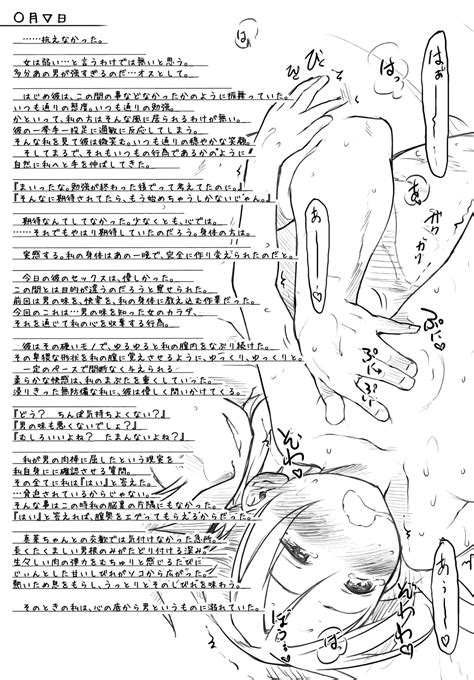 〇月▽日
……抗えなかった。
女は弱い…と言うわけでは無いと思う。
多分あの男が強すぎるのだ…オスとして。
はじめ彼は、この間の事などなかったかのように振舞っていた。
いつも通りの態度。いつも通りの勉強。
かといって、私の方はそんな風に居られるわけが無い。
彼の一挙手一投足に過敏に反応してしまう。
そんな私を見て彼は微笑む。いつも通りの穏やかな笑顔。
そしてまるで、それもいつもの行為であるかのように
自然に私へと手を伸ばしてきた。
『まいったな。勉強が終わった後でって考えてたのに。』
『そんなに期待されてたら、もう始めちゃうしかないじゃん。』
期待なんてしてなかった。少なくとも、心では。
……それでもやはり期待していたのだろう。身体の方は。
実感する。私の身体はあの一晩で、完全に作り変えられたのだと。
今日の彼のセックスは、優しかった。
この間とは目的が違うのだろうと察せられた。
前回は男の味を、快楽を、私の身体に教え込む作業だった。
今回のこれは…男の味を知った女のカラダ、
それを通じて私の心を収奪する行為。
彼はその硬いモノで、ゆるゆると私の膣内をなぶり続けた。
その卑猥な形状を私の膣に覚えさせるように、ゆっくり、ゆっくりと。
一定のペースで間断なく与えられる
柔らかな快感は、私のまぶたを重くしていった。
浸りきった無防備な私に、彼は優しく問いかけてくる。
『どう? ちんぽ気持ちよくない?』
『男の味も悪くないでしょ?』
『むしろいいよね? たまんないよね?』
私が男の肉棒に屈したという現実を
私自身にに確認させる質問。
その全てに私は『はい』と答えた。
……脅迫されているからじゃない。
そんな事はこの時私の脳裏の片隅にもなかった。
『はい』と答えれば、膣奥をエグってもらえるからだった。
真菜ちゃんとの交歓では気付けなかった急所。
長くたくましい男根のみがたどり付ける深み。
生々しい肉の弾力をむちゅりと感じるたびに
じぃんとした甘いしびれがソコから広がった。
熱いため息をもらし、うっとりとそのしびれを味わう。
そのときの私は、心の底から男というものに溺れていた。
はっ
びくっ
はぁーーっ♡
ガリ
ガリ
あーーっ♡
ぷに♡
ぷに♡
ぞわ
ぞわわ
はっ